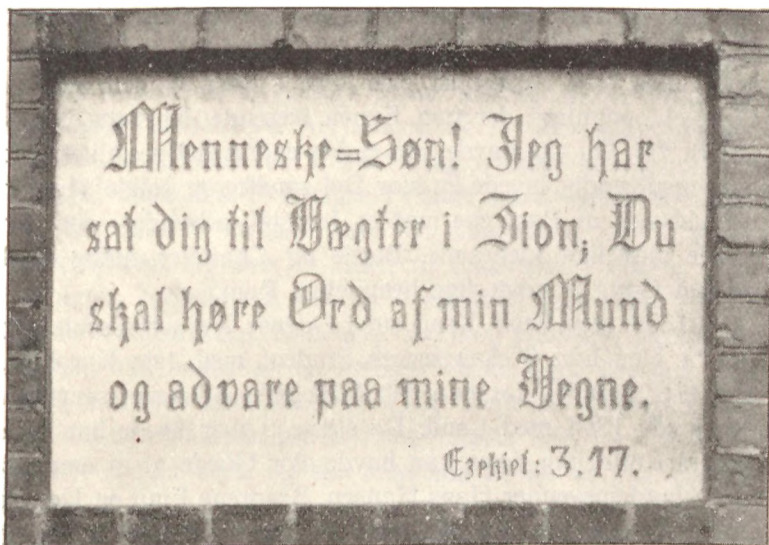 Menneske=Søn! Jeg har
sat dig til Vægter i Zion; Du
skal høre Ord af min Mund
og advare paa mine Vegne.
Ezekiel: 3.17.